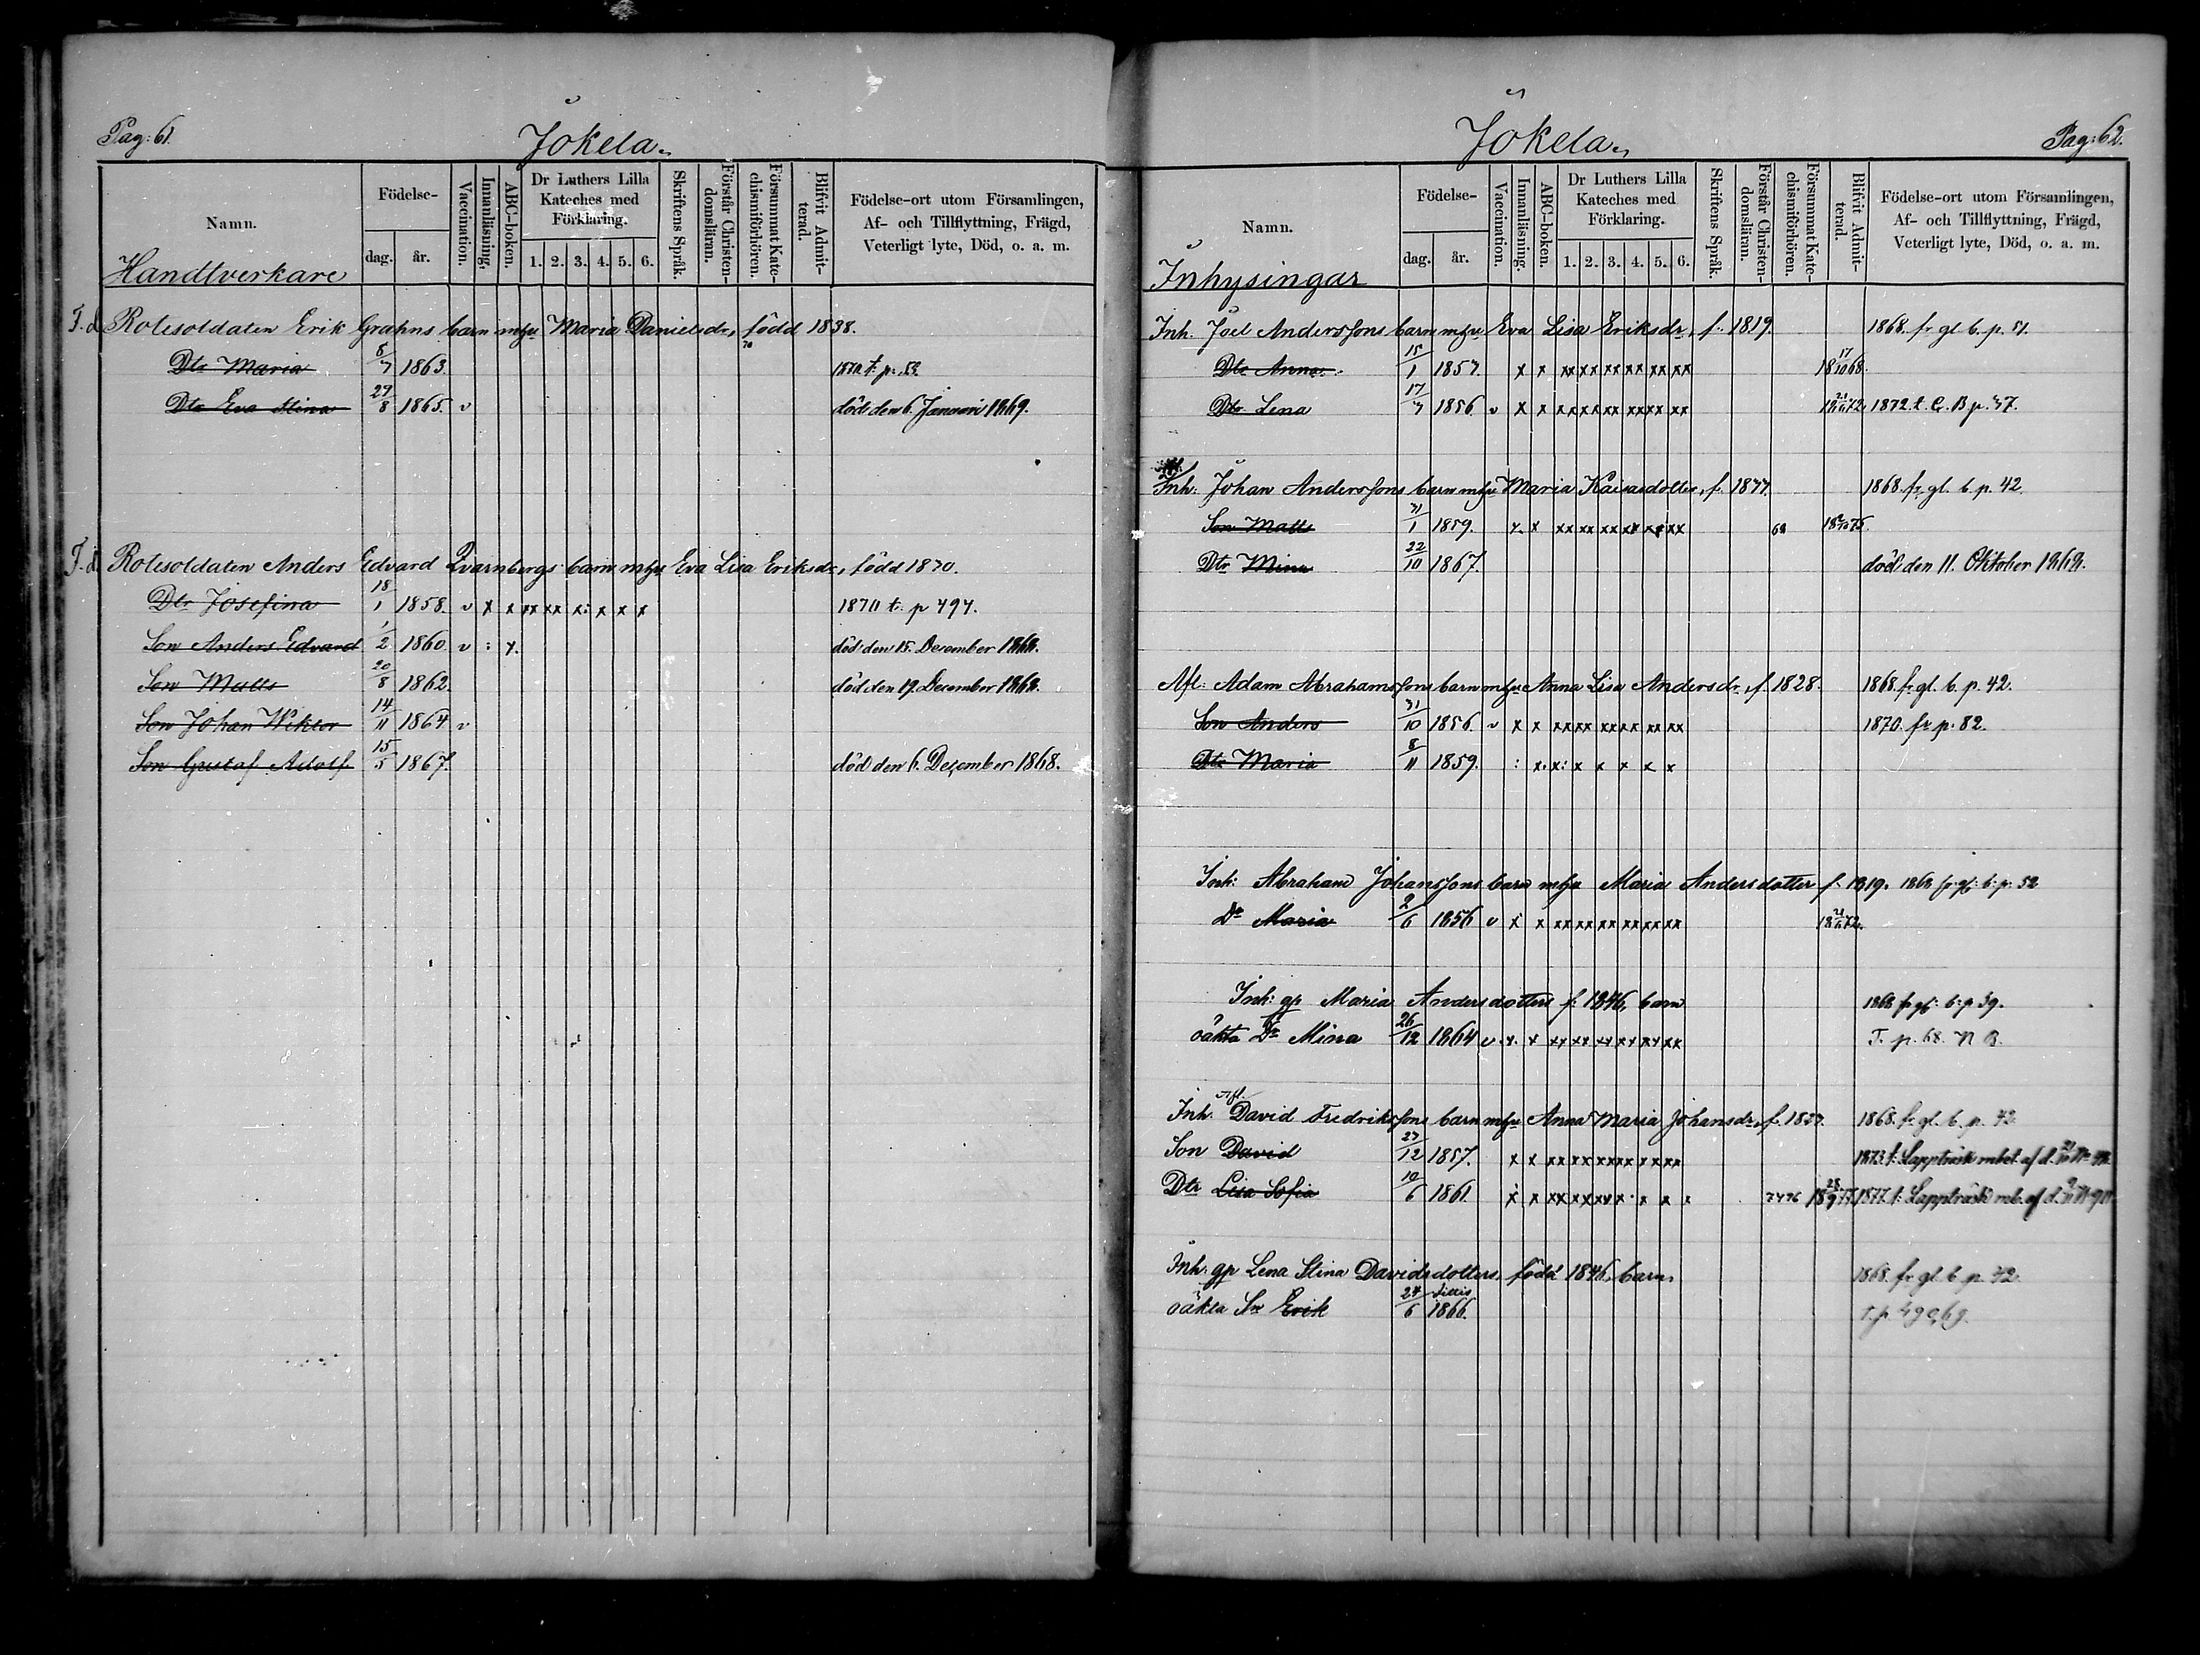 Pag: 61.
Jokela.
Namn.
Födelse-
dag. år.
Vaccination.
Innanläsning.
ABC-boken.
Dr Luthers Lilla Kateches med Förklaring.
1. 2. 3. 4. 5. 6.
Skriftens Språk.
Förstår Christendomsläran.
Försummat Katechismiförhören.
Blifvit Admitterad.
Födelse-ort utom Församlingen,
Af- och Tillflyttning, Frägd,
Veterligt lyte, Död, o. a. m.
Handtverkare
F. d. Rotesoldaten Erik Grahns barn m hu Maria Danielsdr, född 1838.
Dtr Maria 5/7 1863. 1870 t. p. 53.
Dtr Eva Stina 27/8 1865. v död den 6. Januari 1869.
F. d. Rotesoldaten Anders Edvard Qvarnbergs barn m hu Eva Lisa Eriksdr, född 1830.
Dtr Josefina 18/1 1858. v x x xx xx x: x x x 1870 t. p 494.
Son Anders Edvard 1/2 1860. v : x. död den 15. December 1868.
Son Matts 20/8 1862. död den 19. December 1868.
Son Johan Wiktor 14/11 1864 v
Son Gustaf Adolf 15/5 1867. död den 6. December 1868.
Pag: 62.
Jokela.
Namn.
Födelse-
dag. år.
Vaccination.
Innanläsning.
ABC-boken.
Dr Luthers Lilla Kateches med Förklaring.
1. 2. 3. 4. 5. 6.
Skriftens Språk.
Förstår Christendomsläran.
Försummat Katechismiförhören.
Blifvit Admitterad.
Födelse-ort utom Församlingen,
Af- och Tillflyttning, Frägd,
Veterligt lyte, Död, o. a. m.
Inhysingar
Inh. Joel Anderssons barn m hu Eva Lisa Eriksdr, f. 1819. 1868. fr gl. b. p. 51.
Dtr Anna 15/1 1857. x x xx xx xx xx xx xx 18 17/10 68.
Dtr Lena 17/7 1856 v x x xx xx xx xx xx xx 1872. t. C. B p. 37.
Inh. Johan Anderssons barn m hu Maria Kaisasdotter, f. 1833. 1868. fr gl. b. p. 42.
Son Matts 31/1 1859. x x xx xx xx xx xx xx 68
Dtr Mina 22/10 1867. död den 11. Oktober 1868.
Afl: Adam Abrahamssons barn m hu Anna Lisa Andersdr, f. 1828. 1868. fr gl. b. p. 42.
Son Anders 31/10 1856. v x x xx xx xx xx xx xx 1870. fr p. 82.
Dtr Maria 8/11 1859. : x. x: x x x x x
Inh: Abraham Johanssons barn m hu Maria Andersdotter f. 1819. 1868 fr gl: b: p: 52
Dr Maria 2/6 1856 v x x xx xx xx xx xx xx
Inh: gp Maria Andersdotters f: 1846, barn 1868 fr gl: b: p 39.
oäkta Dr Mina 26/12 1864 v x. x xx xx xx xx xx xx T. p. 68. N B.
Inh. Afl. David Fredrikssons barn m hu Anna Maria Johansdr, f. 1837. 1868. fr gl. b. p. 43.
Son David 27/12 1857. x x xx xx xx xx xx xx 1873 t. Lappträsk mbet. af d.
Dtr Lisa Sofia 10/6 1861. x x xx xx xx x x x 18 28/9 77. 1877. t. Lappträsk mb. af d.
Inh: gp Lena Stina Davidsdotters, född 1846, barn. 1868. fr gl. b. p. 42.
oäkta Sn Erik 24/6 1866.